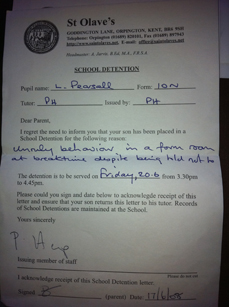 St Olave's
GODDINGTON LANE, ORPINGTON, KENT, BR6 9SH
SCHOOL DETENTION
Pupil name: L. Pearsall Form: 10N
Tutor PH Issued by: PH
Dear Parent,
I regret to inform you that your son has been placed in a
School Detention for the following reason:
unruly behavior in a form room
at breaktime despite being told not to
The detention is to be served on Friday, 20.6 from 3.30pm
to 4.45pm.
Please could you sign and date below to acknowledge receipt of this
letter and ensure that your son returns this letter to his tutor. Records
of School Detentions are maintained at the School.
Yours sincerely
Issuing member of staff
I acknowledge receipt of this School Detention letter.
Signed (parent) Date: 17/6/08